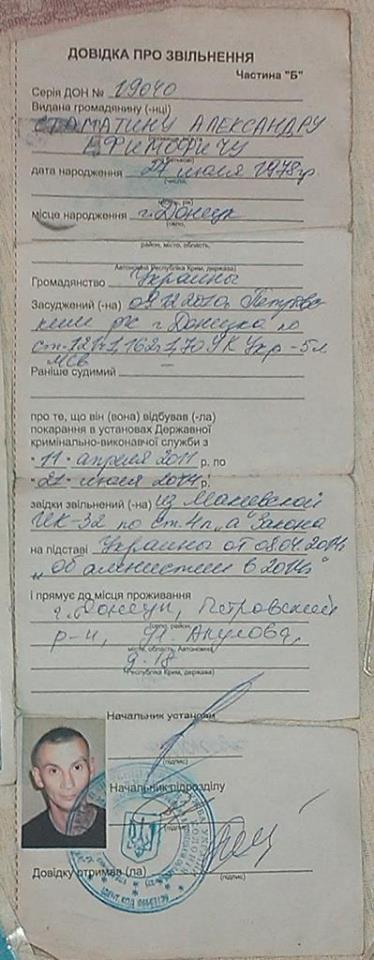 ДОВІДКА ПРО ЗВІЛЬНЕННЯ
Частина "Б"
Серія ДОН № 19040
Видана громадянину (-нці)
СТАМАТИНУ АЛЕКСАНДРУ
ЕФИМОВИЧУ
дата народження 27 июля 1978г.
місце народження г. Донецк
район, місто, область,
Автономна Республіка Крим, держава)
Громадянство Украины
Засуджений (-на) 09.12.2010г. Петровс
ким р/с г. Донецка по
ст. 121ч1, 162ч1, 70 УК Укр - 5л
Раніше судимий
про те, що він (вона) відбував (-ла)
покарання в установах Державної
кримінально-виконавчої служби з
"11" апреля 2011 р. по
"21" июля 2014 р.
звідки звільнений (-на) из Макеевской
ИК-32 по ст. 4 п. "а" Закона
на підставі Украины от 08.04.2014г.
"Об амнистии в 2014г"
і прямує до місця проживання
г. Донецк, Петровский
р-н, ул. Акулова,
(село, район,
місто, область, Автономна
д. 18
Республіка Крим, держава)
Начальник установи
(підпис)
Начальник підрозділу
(підпис)
Довідку отримав (ла)
(підпис)